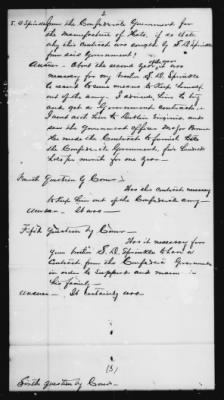 2
S. D. Sprinkle from the Confederate Government for
the manufacture of Hats, if so state
why this Contract was sought by S. D. Sprinkle
from said Government?
Answer - About the second year it was
necessary for my brother S. D. Sprinkle
to use some means to keep himself
out of the army. I advised him to try
and get a Government contract.
I and him to Dublin Virginia and
saw the Government Officer Major
He made the Contract to furnish
the Confederate Government, five hundred
Hats per month for one year -
Fourth Question by Comr -
Was this contract necessary
to keep him out of the Confederate army -
Answer - It was -
Fifth Question by Comr -
Was it necessary for
your brother S. D. Sprinkle to have a
Contract from the Confederate Government
in order to support and maintain
his family -
Answer - It certainly was -
(3)
Sixth Question by Comr -